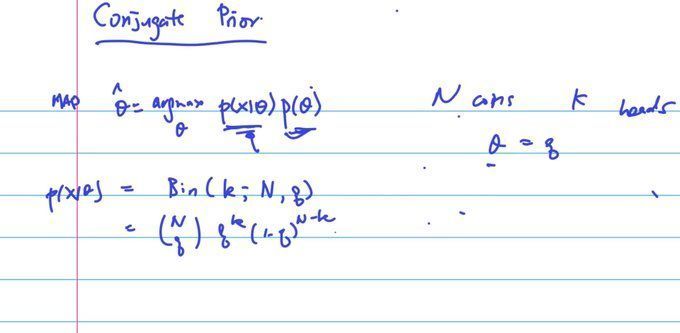 Conjugate Prior
MAP θ̂ = argmax p(x|θ) p(θ)
θ
N coins K heads
θ = q
p(x|θ) = Bin(k; N, q)
= (N q) q^k (1-q)^{N-k}